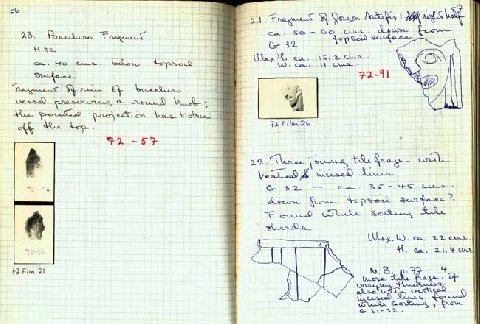 56
23. Bucchero Fragment
H 32
ca. 40 cms. below topsoil
surface.
Fragment of rim of bucchero
vessel preserving a round knob;
the pointed projection has broken
off the top.
72-57
72 Film 21
57
21. Fragment of Gorgon Antefix:
ca. 50-60 cms. down from
G 32 topsoil surface
Max H. ca. 15.2 cms.
W. ca. 11 cms.
72-91
72 Film 26
22. Three joining tile frags. with
vertical incised lines
G 32 — ca. 35-45 cms.
down from topsoil surface?
Found while sorting tile
sherds
Max. W. ca. 22 cms.
H. ca. 21.4 cms.
N.B. p. 77
more tile frags. of
varying thickness,
also with vertical
incised lines found
while sorting, from